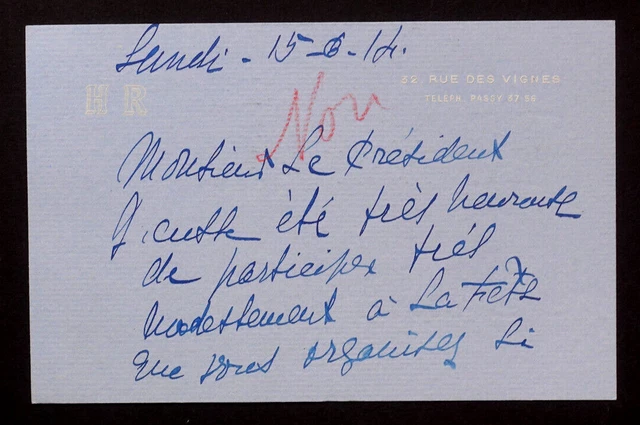 Lundi - 15-6-14.
H R
32, RUE DES VIGNES
TELEPH. PASSY 57-56
Non
Monsieur Le Président
J'eusse été très heureuse
de participer très
modestement à La Fête
que vous organisez si